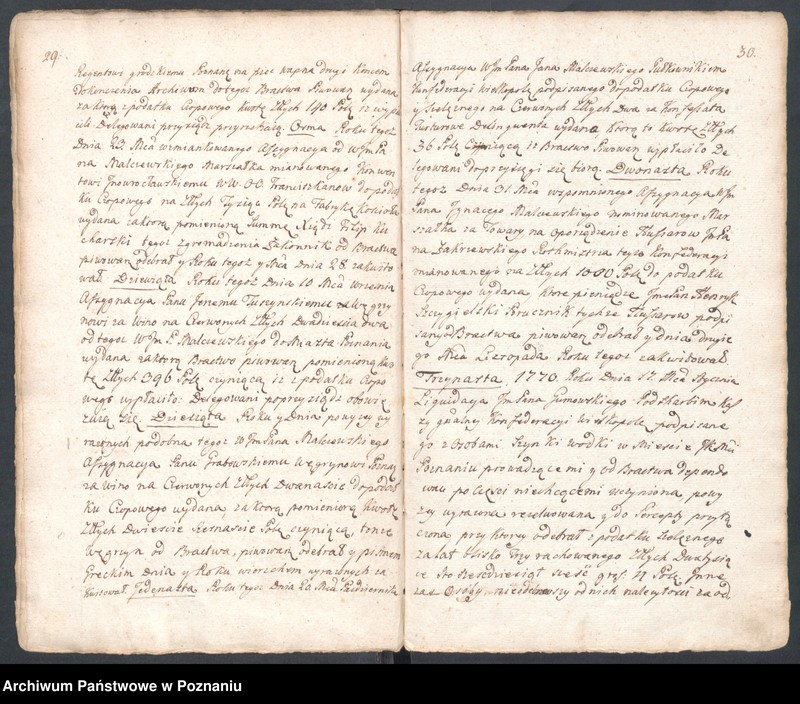 29.
Regentowi grodzkiemu Poznań. na piec wapna dnyi Koncem
Dokonczenia Archiwum do tegoż Bractwa Piwowar. wydana
za którą z podatku Czopowego kwotę Złłych 140 Polą. iż wypła
cili Delegowani przysiądz przyrzekają. Osma Roku tegoż
Dnia 22 Mca wzmiankowanego Assygnacya od WJm Pa
na Malczewskiego Marszałka mianowanego Konwen
towi Jnowrocławskiemu WW. OO. Franciszkanów do podat
ku Czopowego na Złłych Tysiąc Polą. na Fabrykę Kościoła
wydana za ktorą pomienioną Summę Xiądz Filip Ku
charski tegoż zgromadzenia Zakonnik od Bractwa
piwowar. odebrał y Roku tegoż y Mca Dnia 28. zakwito
wał. Dziewiąta Roku tegoż Dnia 10 Mca Września
Assygnacya Panu Jonemu Turzynskiemu Węgrzy
nowi za Wino na Czerwonych Złłych Dwadziescia dwa
od tegoż WJm P. Malczewskiego do Miasta Poznania
wydana za ktorą Bractwo piwowar. pomienioną kwo
tę Złłych 396 Polą. czyniącą iż z podatku Czopo
wego wypłaciło. Delegowani poprzysiądz obowię
zują się. Dziesiąta Roku y Dnia powyżey wy
rażonych podobna tegoż WJm Pana Malczewskiego
Assygnacya Panu Grabowskiemu Węgrzynowi Poznań.
za Wino na Czerwonych Złłych Dwanascie do podat
ku Czopowego wydana za ktorą pomienioną kwotę
Złłych Dwiescie Szesnascie Polą. czyniącą, tenże
Węgrzyn od Bractwa, piwowar. odebrał y pismem
Greckim Dnia y Roku wierzchem wyrażonych za
kwitował. Jedenasta Roku tegoż Dnia 20 Mca Pazdziernika
30.
Assygnacya WJm Pana Jana Malczewskiego Pułkownikiem
Konfederacyi Wielkopols. podpisanego do podatku Czopowego
y Szelężnego na Czerwonych Złłych Dwa za Konfiskata
Delinquenta wydana ktorą to kwotę Złłych
36 Polą. Czyniącą iż Bractwo Piwowar. wypłaciło De
legowani do przysięgi się biorą. Dwonasta Roku
tegoż Dnia 31 Mca wzpomnionego Assygnacya WJm
Pana Jgnacego Malczewskiego nominowanego Mar
szałka za Towary na oporządzenie Hussarow JmPa
na Zakrzewskiego Rothmistrza teyże Konfederacyi
mianowanego na Złłych 1000 Polą. do podatku
Czopowego wydana, ktore pieniądze JmPan Henryk
Szczygielski Porucznik tychże Hussarow podpi
sany od Bractwa piwowar. odebrał y Dnia drugie
go Mca Listopada Roku tegoż zakwitował.
Trzynasta. 1770. Roku Dnia 17. Mca Stycznia
Liquidacya JmPana Gumowskiego Podskarbim Kas
sy gralney Konfederacyi Wielkopols. podpisane
go z Osobami Szynki wodki w Miescie JKMci
Poznaniu prowadzącemi y od Bractwa dependo
wać po części niechcącemi uczyniona, powy
zy wyrażona rezolwowana y do Percepty przyłą
czona przy ktorey odebrał z podatku Szelężnego
za lat blisko Trzy rachowanego Złłych Dwatysią
ce Sto Szescdziesiąt szesc grsz. 11 Polą. Jnne
zaś Osoby niezdawszy od nich należytosci za od